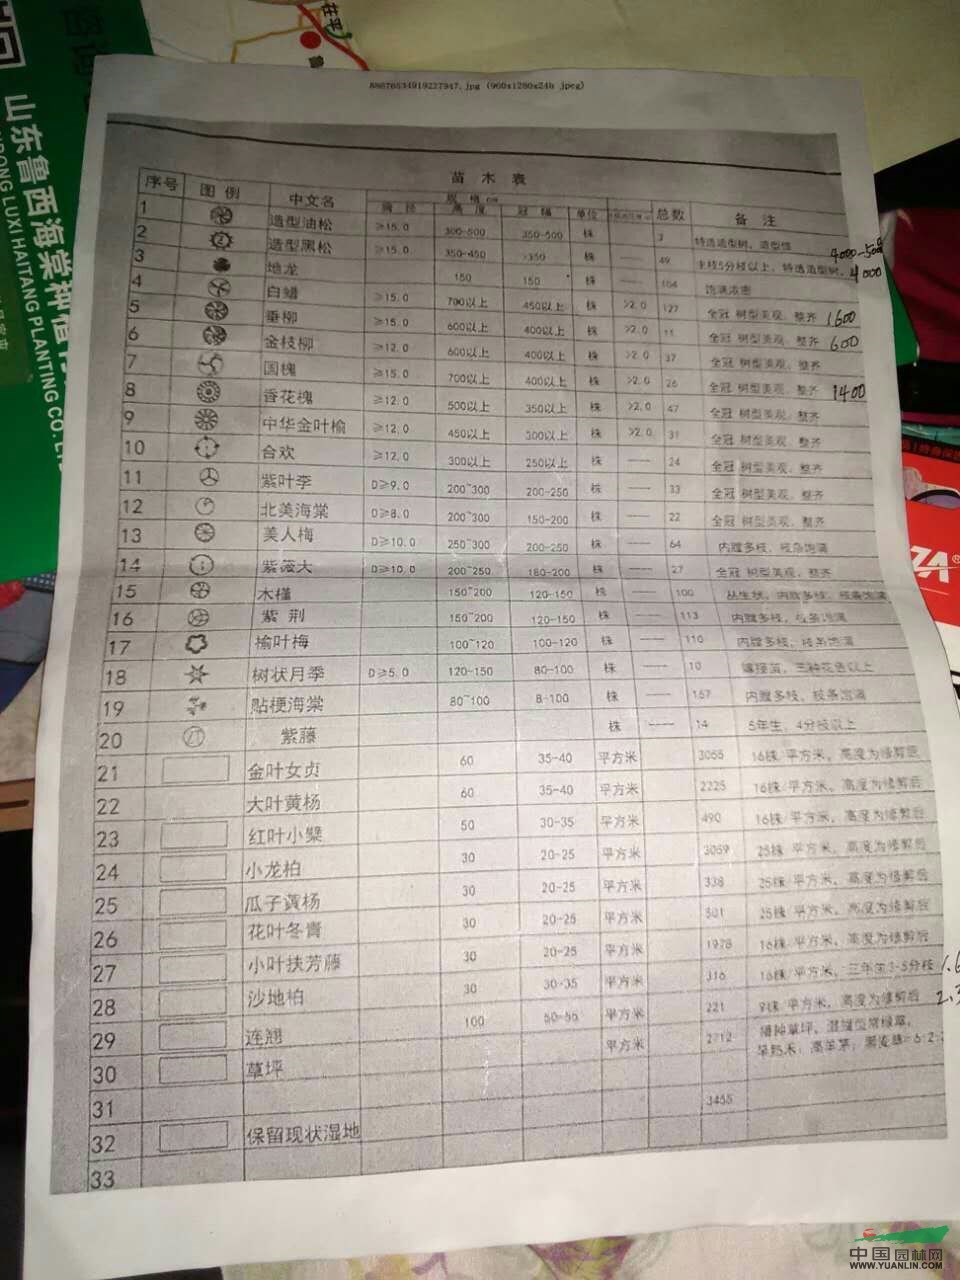 山东鲁西海棠种植
DONG LUXI HAITANG PLANTING CO.,L
在平
88676534919227947.jpg (960x1280x24b jpeg)
苗 木 表
序号 图 例 中文名 规 格 cm 总数 备 注
胸 径 高 度 冠 幅 单位
1 造型油松 ≥15.0 300-500 350-500 株 3 特选造型树，造型
2 造型黑松 ≥15.0 350-450 >350 株 —— 49 主枝5分枝以上，特选造型树， 4000-500
3 地龙 150 150 株 —— 164 饱满浓密 4000
4 白蜡 ≥15.0 700以上 450以上 株 >2.0 127 全冠 树型美观，整齐 1600
5 垂柳 ≥15.0 600以上 400以上 株 >2.0 11 全冠 树型美观，整齐 600
6 金枝柳 ≥12.0 600以上 400以上 株 >2.0 37 全冠 树型美观，整齐
7 国槐 ≥15.0 700以上 400以上 株 >2.0 26 全冠 树型美观，整齐 1400
8 香花槐 ≥12.0 500以上 350以上 株 >2.0 47 全冠 树型美观，整齐
9 中华金叶榆 ≥12.0 450以上 300以上 株 >2.0 31 全冠 树型美观，整齐
10 合欢 ≥12.0 300以上 250以上 株 —— 24 全冠 树型美观，整齐
11 紫叶李 D≥9.0 200~300 200-250 株 —— 33 全冠 树型美观，整齐
12 北美海棠 D≥8.0 200~300 150-200 株 —— 22 全冠 树型美观，整齐
13 美人梅 D≥10.0 250~300 200-250 株 —— 64 内膛多枝，枝条饱满
14 紫薇大 D≥10.0 200~250 180-200 株 —— 27 全冠 树型美观，整齐
15 木槿 150~200 120-150 株 —— 100 丛生状，内膛多枝，枝条饱满
16 紫 荆 150~200 120-150 株 —— 113 内膛多枝，枝条饱满
17 榆叶梅 100~120 100-120 株 —— 110 内膛多枝，枝条饱满
18 树状月季 D≥5.0 120-150 80-100 株 —— 10 嫁接苗，三种花色以上
19 贴梗海棠 80~100 8-100 株 —— 167 内膛多枝，枝条饱满
20 紫藤 株 —— 14 5年生，4分枝以上
21 金叶女贞 60 35-40 平方米 3065 16株/平方米，高度为修剪后
22 大叶黄杨 60 35-40 平方米 2225 16株/平方米，高度为修剪后
23 红叶小檗 50 30-35 平方米 490 16株/平方米，高度为修剪后
24 小龙柏 30 20-25 平方米 3059 25株/平方米，高度为修剪后
25 瓜子黄杨 30 20-25 平方米 338 25株/平方米，高度为修剪后
26 花叶冬青 30 20-25 平方米 501 25株/平方米，高度为修剪后
27 小叶扶芳藤 30 20-25 平方米 1978 16株/平方米，高度为修剪后
28 沙地柏 30 30-35 平方米 316 16株/平方米，三年生3-5分枝 1.6
29 连翘 100 50-55 平方米 221 9株/平方米，高度为修剪后 2.3
30 草坪 平方米 2712 播种草坪，混播型常绿草，
早熟禾：高羊茅：黑麦草=6:2:
31 3455
32 保留现状湿地
33
ZA
中国园林网
WWW.YUANLIN.COM